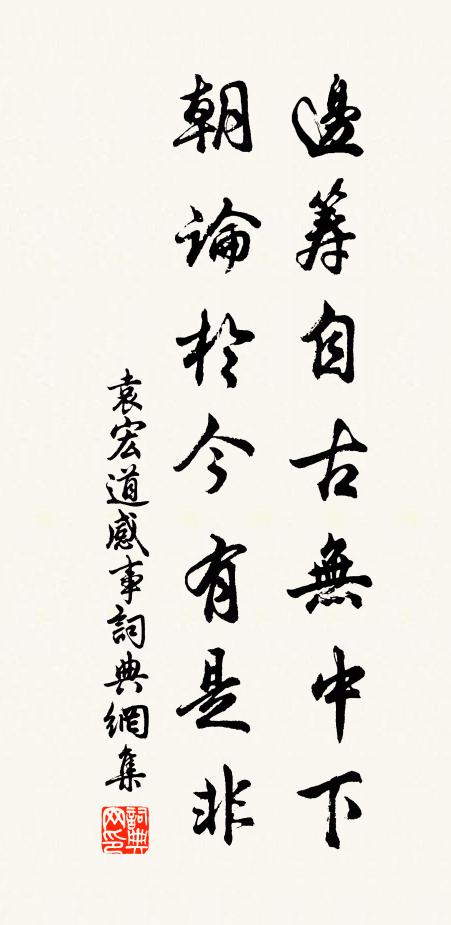 邊筹自古無中下
朝論於今有是非
袁宏道感事詞典網集
詞典网印